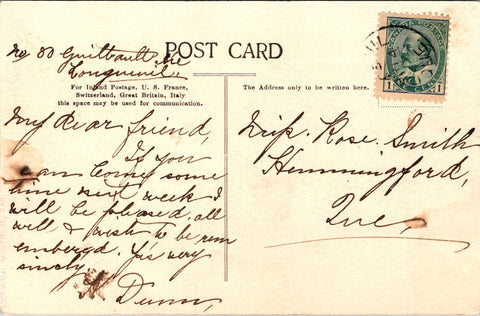 No 80 Guilbault
Longueuil
POST CARD
For Inland Postage, U. S. France,
Switzerland, Great Britain, Italy
this space may be used for communication.
The Address only to be written here.
My Dear friend,
If you
can Come some
time next week I
will be pleased. all
well & wish to be rem
embered. Yrs very
sincly.
Dunn,
Miss. Rose. Smith
Hemmingford,
Que,
CANADA POSTAGE
1 1